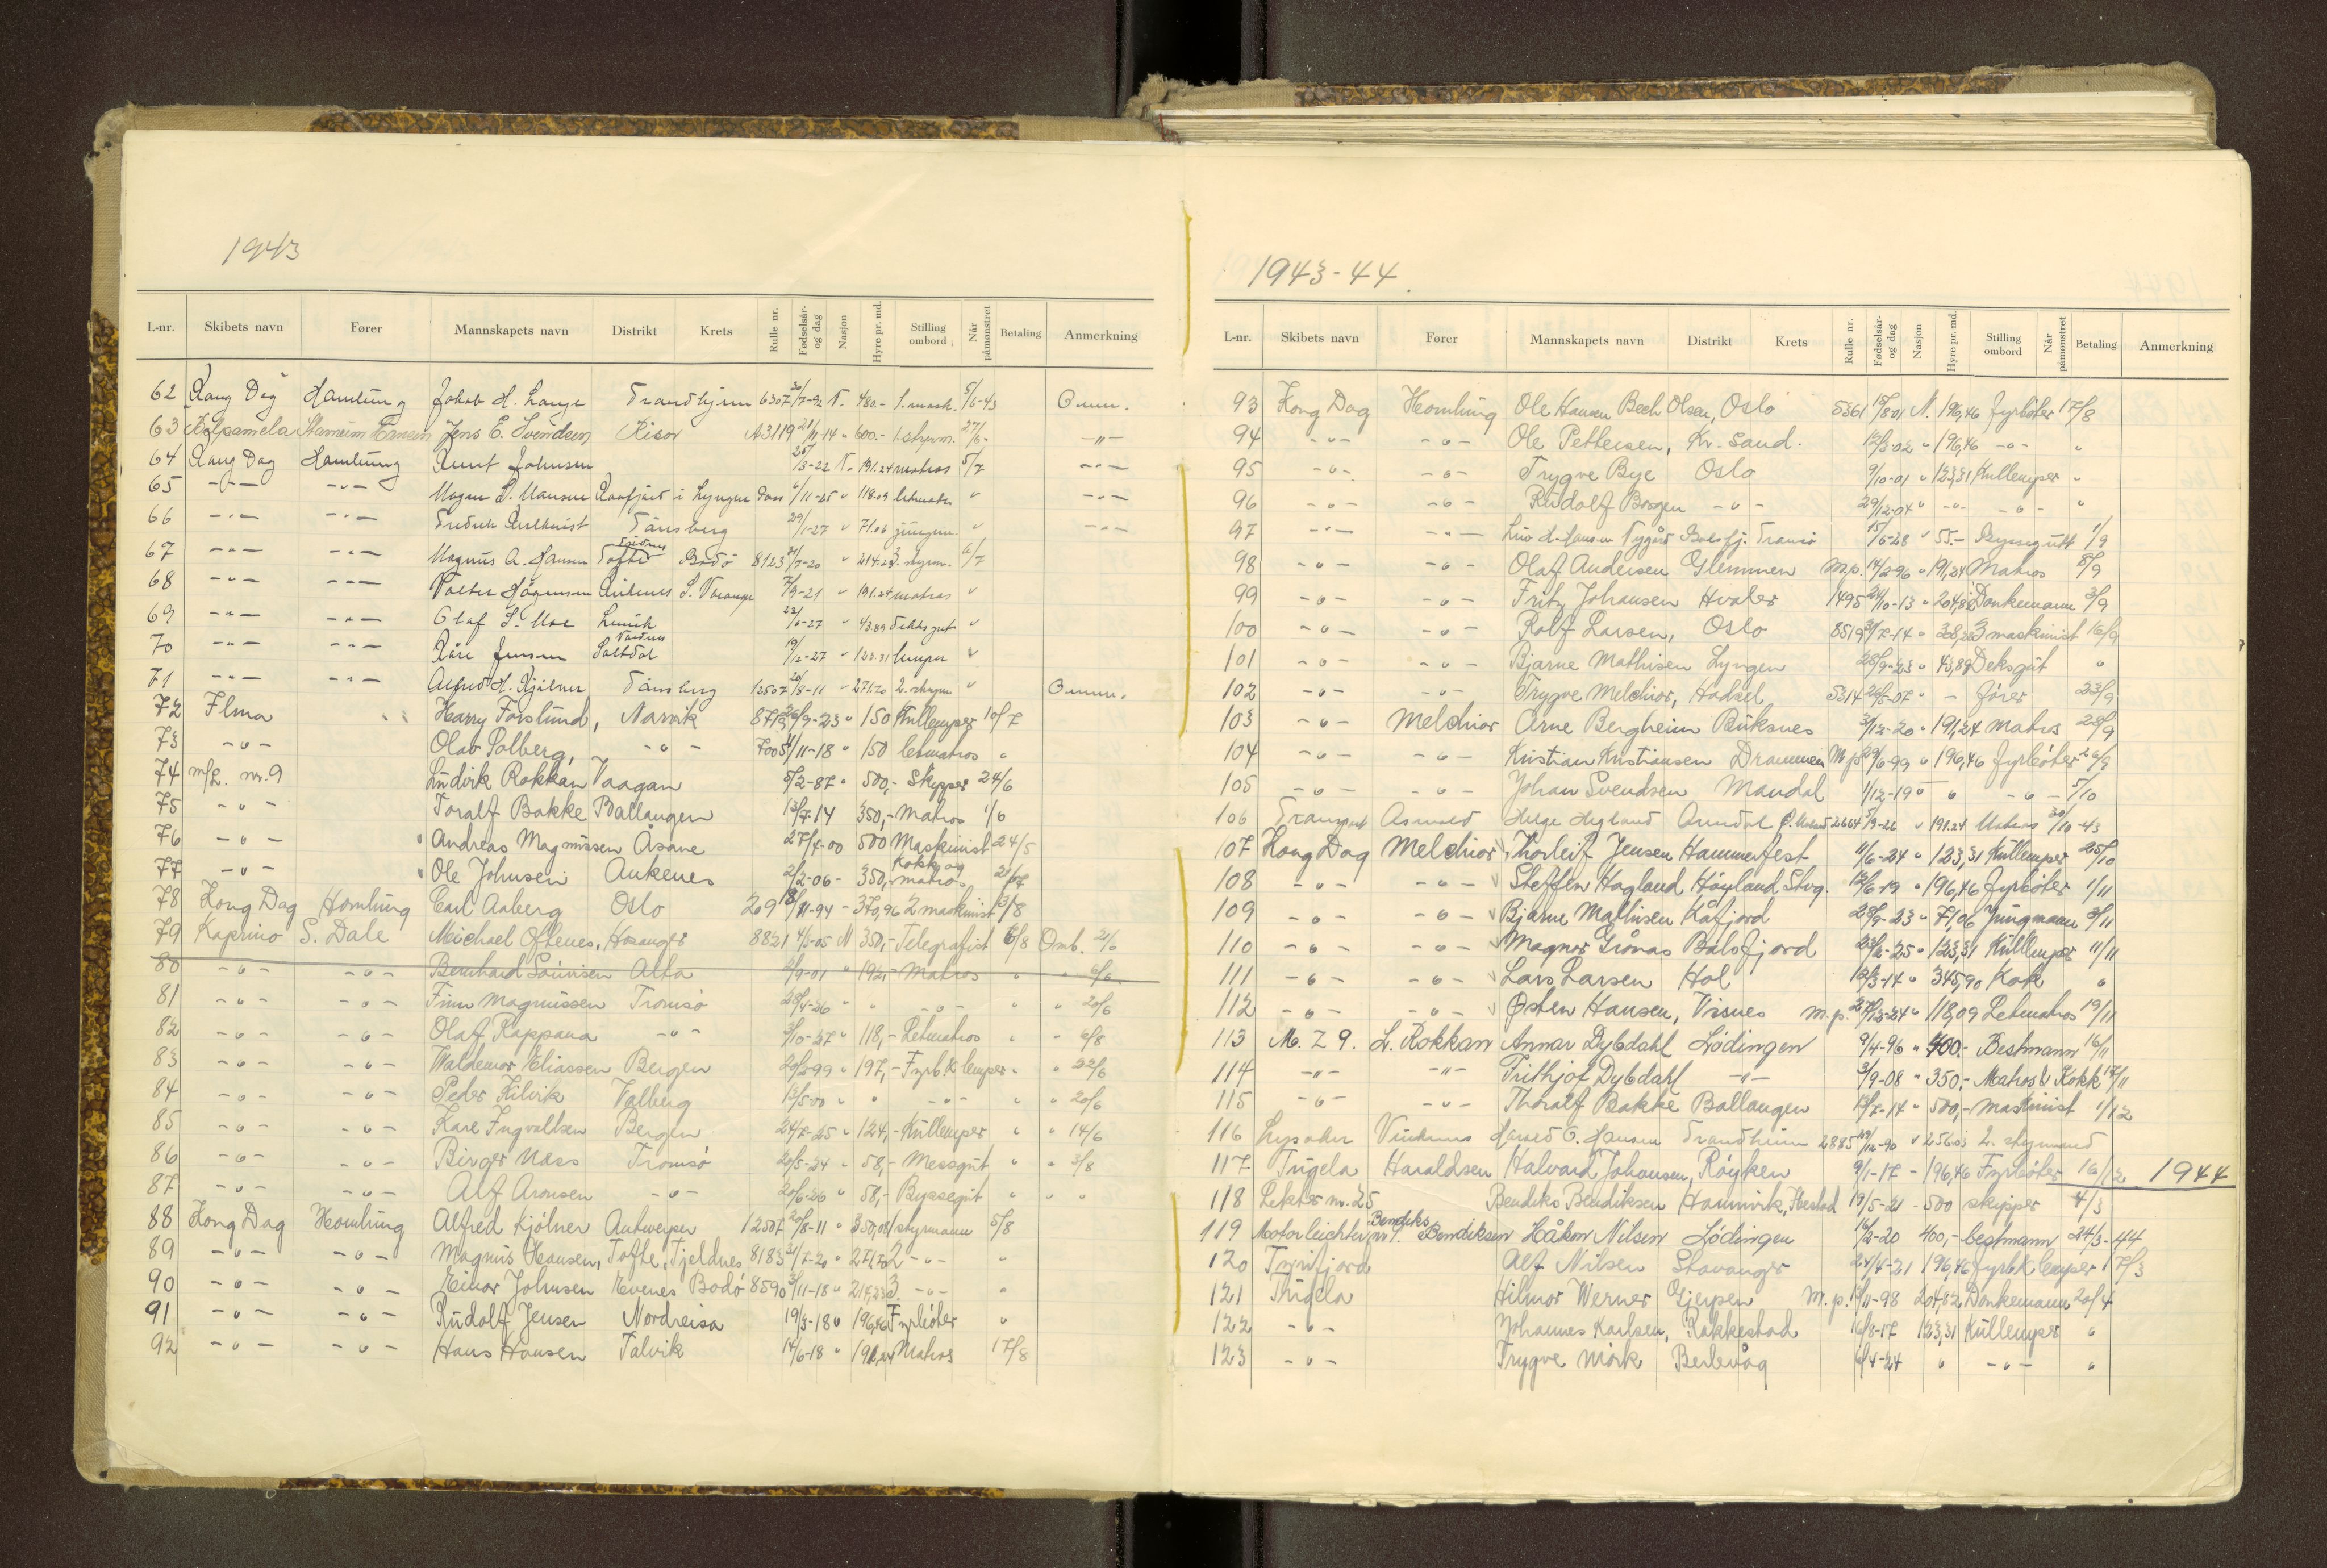 1943
L-nr. Skibets navn Fører Mannskapets navn Distrikt Krets Rulle nr. Fødselsår- og dag Nasjon Hyre pr. md. Stilling ombord Når påmønstret Betaling Anmerkning
62 Kong Dag Homlung Jakob H. Lange Trondhjem 6307 30/7-92 N. 480.- 1. mask. 5/6-43
63 Jens E. Svendsen Risør A3119 21/11-14 " 600.- 1. styrm. 27/6- -"-
64 Kong Dag Homlung Knut Johnsen 20/3-22 N. 191.24 matros 5/7 -"-
65 -"- -"- Lyngen 6/11-25 " 118.09 letmatr. " -"-
66 -"- -"- Tønsberg 29/1-27 " 71.06 jungm. " -"-
67 -"- -"- Magnus A. Hansen Tofte Tjeldnes Bodø 8123 21/7-20 " 214.23 3. styrm. 6/7
68 -"- -"- S. Varanger 7/9-21 " 191.24 matros "
69 -"- -"- Olaf S. Moe Lenvik 23/6-27 " 43.89 deksgut "
70 -"- -"- Kåre Jensen Saltdal 19/12-27 " 123.31 lemper "
71 -"- -"- Alfred H. Kjølner Tønsberg 12507 20/8-11 " 271.20 2. styrm "
72 Ilma Harry Forslund, Narvik 8713 26/9-23 " 150 Kullemper 10/7
73 -"- Olav Solberg, -"- 7005 4/11-18 " 150 letmatros "
74 m/z. nr. 9 Ludvik Rokkan Vaagan 5/2-87 " 500,- Skipper 24/6
75 -"- Toralf Bakke Ballangen 13/7-14 350,- Matros 1/6
76 -"- Andreas Magnussen Åsane 27/7-00 500 Maskinist 24/5
77 -"- Ole Johnsen Ankenes 2/2-06 - 350,- Kokk og matros 21/7
78 Kong Dag Homlung Carl Aaberg Oslo 209 18/11-94 - 370,96 2 maskinist 13/8
79 Kaprino S. Dale Michael Oftenes, Hosanger 8821 4/3-05 N 350,- Telegrafist 6/8 Omb. 21/6
80 -"- -"- Bernhard Sourisen Alta 2/9-01 " 192,- Matros " " 6/6
81 -"- -"- Finn Magnussen Tromsø 28/4-26 " " -"- " " 20/6
82 -"- -"- Olaf Rappana -"- 3/10-27 " 118,- Letmatros " " 6/8
83 -"- -"- Waldemar Eliassen Bergen 20/2-99 " 197,- Fyrb.k lemper " " 22/6
84 -"- -"- Peder Kilvik Valberg 12/5-00 " " -"- " " 20/6
85 -"- -"- Kåre Ingvaltsen Bergen 24/7-25 " 124,- Kullemper " " 14/6
86 -"- -"- Birger Næss Tromsø 20/5-24 " 58,- Messgut " " 3/8
87 -"- -"- Alf Aronsen -"- 20/6-26 " 58,- Byssegut " " "
88 Kong Dag Homlung Alfred Kjølner Antwerpen 12507 20/8-11 " 350,08 1 styrmann 5/8
89 -"- -"- Magnus Hansen, Tofte, Tjeldnes 8183 21/7-20 " 271,20 2 -"- "
90 -"- -"- Einar Johnsen Evenes Bodø 8590 3/11-18 " 214,23 3. -"- "
91 -"- -"- Rudolf Jensen Nordreisa 19/3-18 " 196,46 Fyrbøter "
92 -"- -"- Hans Hansen Talvik 14/6-18 " 191,24 Matros 17/8
1943-44.
L-nr. Skibets navn Fører Mannskapets navn Distrikt Krets Rulle nr. Fødselsår- og dag Nasjon Hyre pr. md. Stilling ombord Når påmønstret Betaling Anmerkning
93 Kong Dag Homlung Ole Hansen Bech Olsen, Oslo 5361 15/8-01 N. 196,46 Fyrbøter 17/8
94 -"- -"- Ole Pettersen, Kr.-Sand. 12/3-02 " 196,46 -"- "
95 -"- -"- Trygve Bye Oslo 9/10-01 " 123,31 Kullemper "
96 -"- -"- Rudolf Borgen -"- 29/12-04 " -"- -"- "
97 -"- -"- Nygård Balsfj. Tromsø 15/6-28 " 55.- Byssegutt 1/9
98 -"- -"- Olaf Andersen Glemmen M.p. 14/2-96 " 191,24 Matros 8/9
99 -"- -"- Fritz Johansen Hvaler 1495 24/10-13 " 204,82 Donkemann 3/9
100 -"- -"- Rolf Larsen, Oslo 8519 31/7-14 " 3 maskinist 16/9
101 -"- -"- Bjarne Mathisen Lyngen 28/9-23 " 43,89 Deksgut "
102 -"- -"- Trygve Melchior, Hadsel 5314 26/5-07 " - fører 23/9
103 -"- Melchior Arne Bergheim Buksnes 31/12-20 " 191,24 Matros 28/9
104 -"- -"- Kristian Kristiansen Drammen M.p. 29/6-99 " 196,46 Fyrbøter 26/9
105 -"- -"- Johan Svendsen Mandal 1/12-19 " " -"- 5/10
106 Transport Helge Hegland Arendal 2664 5/9-26 " 191.24 Matros 30/10-43
107 Kong Dag Melchior Thorleif Jensen Hammerfest 11/6-24 " 123,31 Kullemper 25/10
108 -"- -"- Steffen Hagland, Høyland, Stvg. 12/6-19 " 196,46 Fyrbøter 1/11
109 -"- -"- Bjarne Mathisen Kåfjord 28/9-23 " 71,06 Jungmann 3/11
110 -"- -"- Magnor Grønås Balsfjord 23/2-25 " 123,31 Kullemper 11/11
111 -"- -"- Lars Larsen Hol 12/3-14 " 345,90 Kok "
112 -"- -"- Østen Hansen, Visnes m.p. 27/12-24 " 118,09 Letmatros 19/11
113 M. Z 9. L. Rokkan Annar Dybdahl Lødingen 9/4-96 " 400.- Bestmann 16/11
114 -"- -"- Frithjof Dybdahl -"- 3/9-08 " 350,- Matros/Kokk 17/11
115 -"- -"- Thoralf Bakke Ballangen 13/7-14 " 500,- Maskinist 1/12
116 Lysaker Harald O. Hansen Trondheim 2885 29/12-90 " 2. styrmand
117 Tugela Haraldsen Halvard Johansen, Røyken 9/1-17 - 196,46 Fyrbøter 16/12 1944
118 Lekter nr. 25 Bendiks Bendiksen Hamnvik, Ibestad 19/5-21 - 500 skipper 4/3
119 Motorleichter nr 1. Bendiks Bendiksen Håkon Nilsen Lødingen 16/2-20 400,- bestmann 24/3-44
120 Tyrifjord Alf Nilsen Stavanger 24/4-21 196,46 Fyrb.k lemper 17/3
121 Tugela Hilmar Werner Gjerpen M.p. 12/11-98 204,82 Donkemann 20/4
122 -"- Johannes Karlsen, Rakkestad 16/8-17 123,31 Kullemper "
123 -"- Trygve Mørk Berlevåg 6/4-24 " -"- "